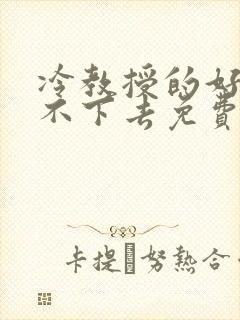 冷教授的好
不下去免費
卡提 努熱合